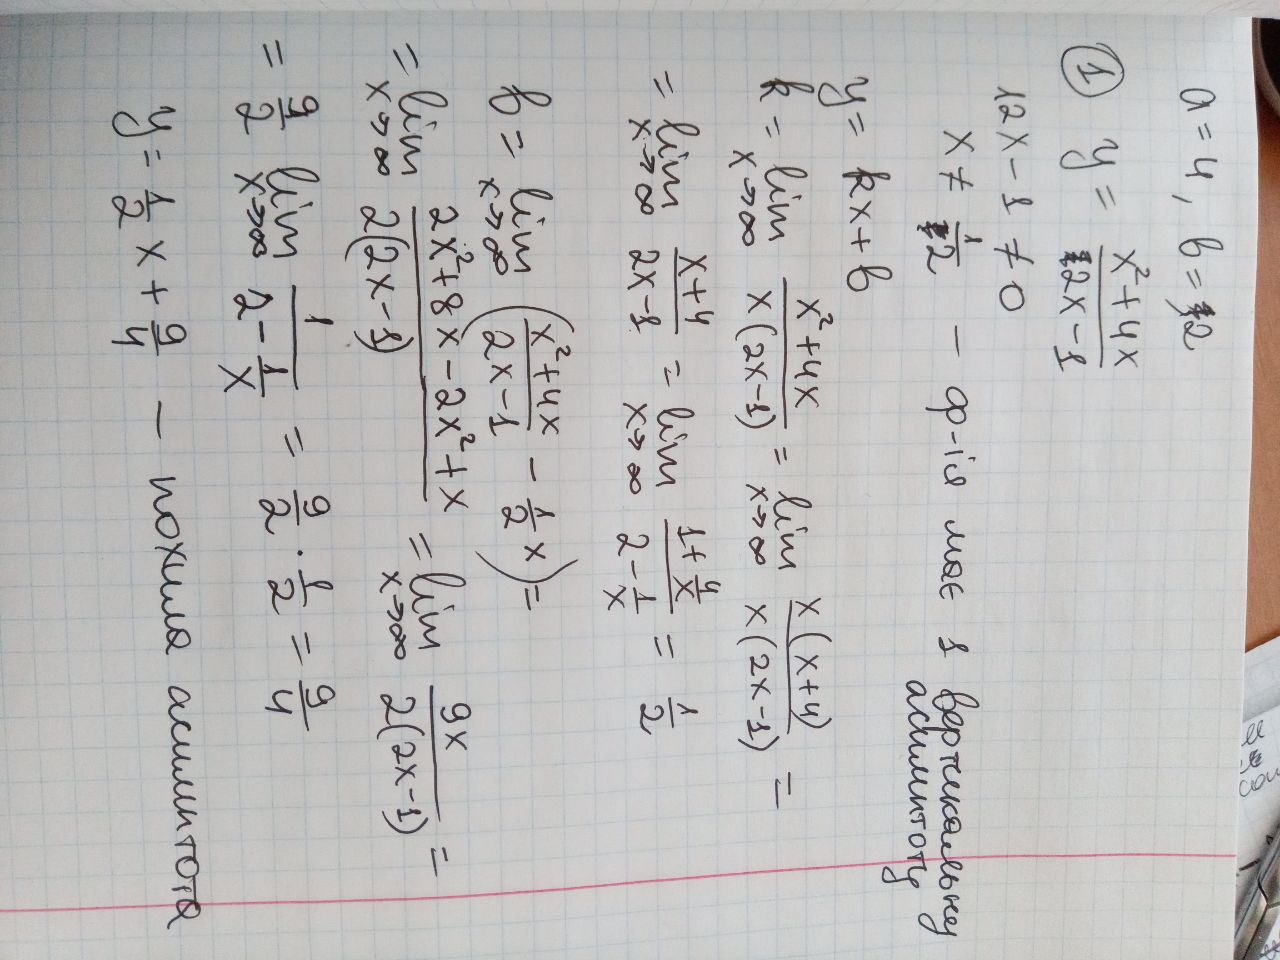 a = 4, b = 2
① y = (x² + 4x)/(2x - 1)
12x - 1 ≠ 0
x ≠ 1/2 — ф-ія має 1 вертикальну
асимптоту
y = kx + b
k = lim x→∞ (x² + 4x)/(x(2x - 1)) = lim x→∞ (x(x + 4))/(x(2x - 1)) =
= lim x→∞ (x + 4)/(2x - 1) = lim x→∞ (1 + 4/x)/(2 - 1/x) = 1/2
b = lim x→∞ ((x² + 4x)/(2x - 1) - 1/2 x) =
= lim x→∞ (2x² + 8x - 2x² + x)/(2(2x - 1)) = lim x→∞ 9x/(2(2x - 1)) =
= 9/2 lim x→∞ 1/(2 - 1/x) = 9/2 · 1/2 = 9/4
y = 1/2 x + 9/4 — похила асимптота